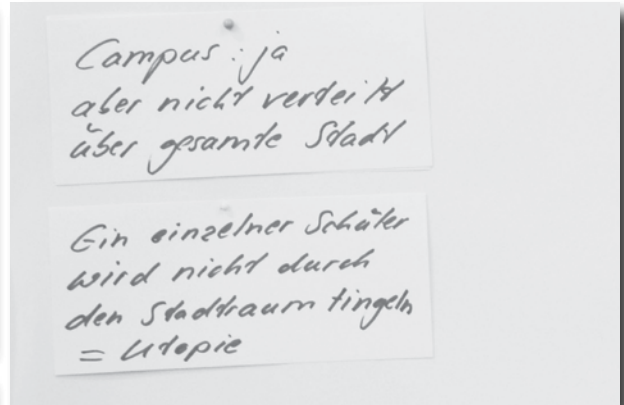 Campus: ja
aber nicht verteilt
über gesamte Stadt
Ein einzelner Schüler
wird nicht durch
den Stadtraum tingeln
= Utopie